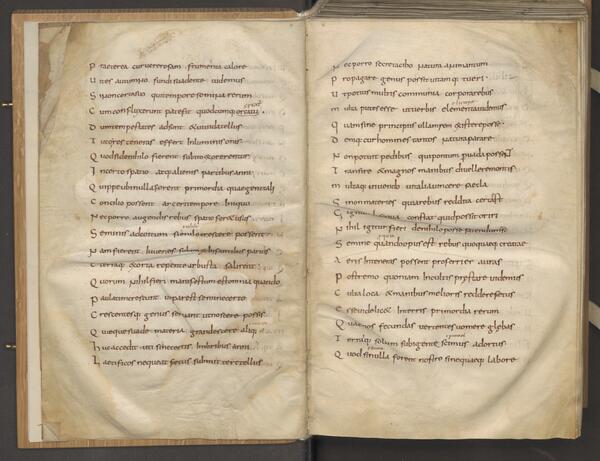 Praeterea cur uererosam frumenta calore
Uites autumno fundi suadente uidemus
Si non certa suo quia tempore semina rerum
Cum confluxerunt patefit quodcumque creatur
Dum tempestates adsunt et uiuida tellus
Tuto res teneras effert in luminis oras
Quod si de nihilo fierent subito exorerentur
Incerto spatio atque alienis partibus anni
Quippe ubi nulla forent primordia quae genitali
Concilio possent arceri tempore iniquo
Nec porro augendis rebus spatio foret usus
Seminis ad coitum si e nihilo crescere possent
Nam fierent iuuenes subito ex infantibus paruis
E terraque exorta repente arbusta salirent
Quorum nihil fieri manifestum est omnia quando
Paulatim crescunt ut par est semine certo
Crescentesque genus seruant ut noscere possis
Quicque sua de materia grandescere alique
Huc accedit uti sine certis imbribus anni
Laetificos nequeat fetus submittere tellus
Nec porro secreta cibo natura animantum
Propagare genus possit uitamque tueri
Ut potius multis communia corpora rebus
Multa putes esse ut uerbis elementa uidemus
Quam sine principiis ullam rem existere posse
Denique cur homines tantos natura parare
Non potuit pedibus qui pontum per uada possent
Transire et magnos manibus diuellere montis
Multaque uiuendo uitalia uincere saecla
Si non materies quia rebus reddita certast
E qua constat quid possit oriri
Nihil igitur fieri de nihilo posse fatendumst
Semine quando opus est rebus quo quaeque creatae
Aeris in teneras possent proferrier auras
Postremo quoniam incultis praestare uidemus
Culta loca et manibus melioris reddere fetus
Esse uidelicet in terris primordia rerum
Quae nos fecundas uertentes uomere glebas
Terraique solum subigentes cimus ad ortus
Quod si nulla forent nostro sine quaeque labore